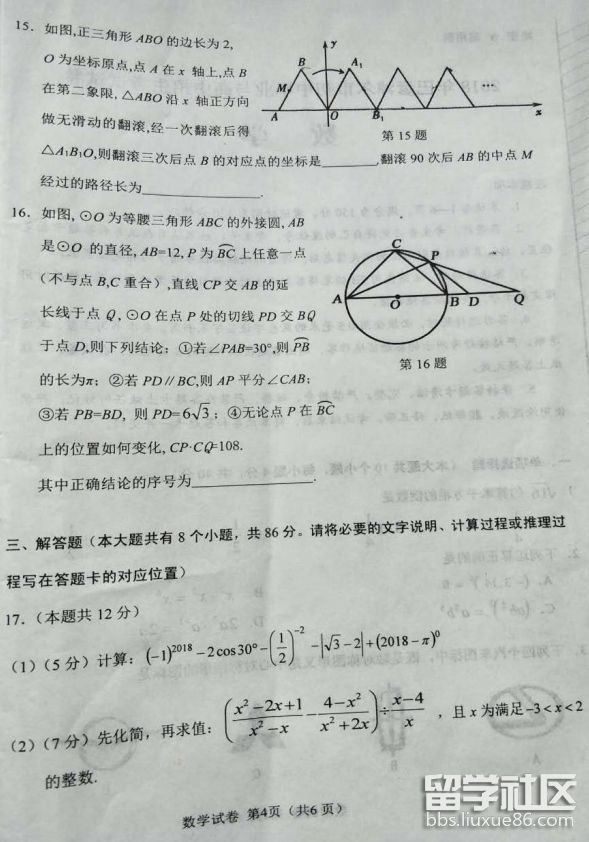 15. 如图,正三角形 ABO 的边长为 2,
O 为坐标原点,点 A 在 x 轴上,点 B
在第二象限, △ABO 沿 x 轴正方向
做无滑动的翻滚,经一次翻滚后得
△A₁B₁O,则翻滚三次后点 B 的对应点的坐标是________,翻滚 90 次后 AB 的中点 M
经过的路径长为____________.
y
B
A₁
M
...
A
O
B₁
x
第 15 题
16. 如图, ⊙O 为等腰三角形 ABC 的外接圆, AB
是⊙O 的直径, AB=12, P 为 BC 上任意一点
(不与点 B,C 重合),直线 CP 交 AB 的延
长线于点 Q, ⊙O 在点 P 处的切线 PD 交 BQ
于点 D,则下列结论: ①若∠PAB=30°,则 PB
的长为π; ②若 PD∥BC,则 AP 平分∠CAB;
③若 PB=BD, 则 PD=6√3; ④无论点 P 在 BC
上的位置如何变化, CP·CQ=108.
其中正确结论的序号为____________.
C
P
A
O
B
D
Q
第 16 题
三、解答题（本大题共有 8 个小题，共 86 分。请将必要的文字说明、计算过程或推理过
程写在答题卡的对应位置）
17.（本题共 12 分）
(1)（5 分）计算: (-1)²⁰¹⁸-2cos30°-(1/2)⁻²-|√3-2|+(2018-π)⁰
(2)（7 分）先化简，再求值: ((x²-2x+1)/(x²-x) - (4-x²)/(x²+2x)) ÷ (x-4)/x ，且 x 为满足-3<x<2
的整数.
数学试卷 第4页（共6 页）
留学社区
bbs.liuxue86.com